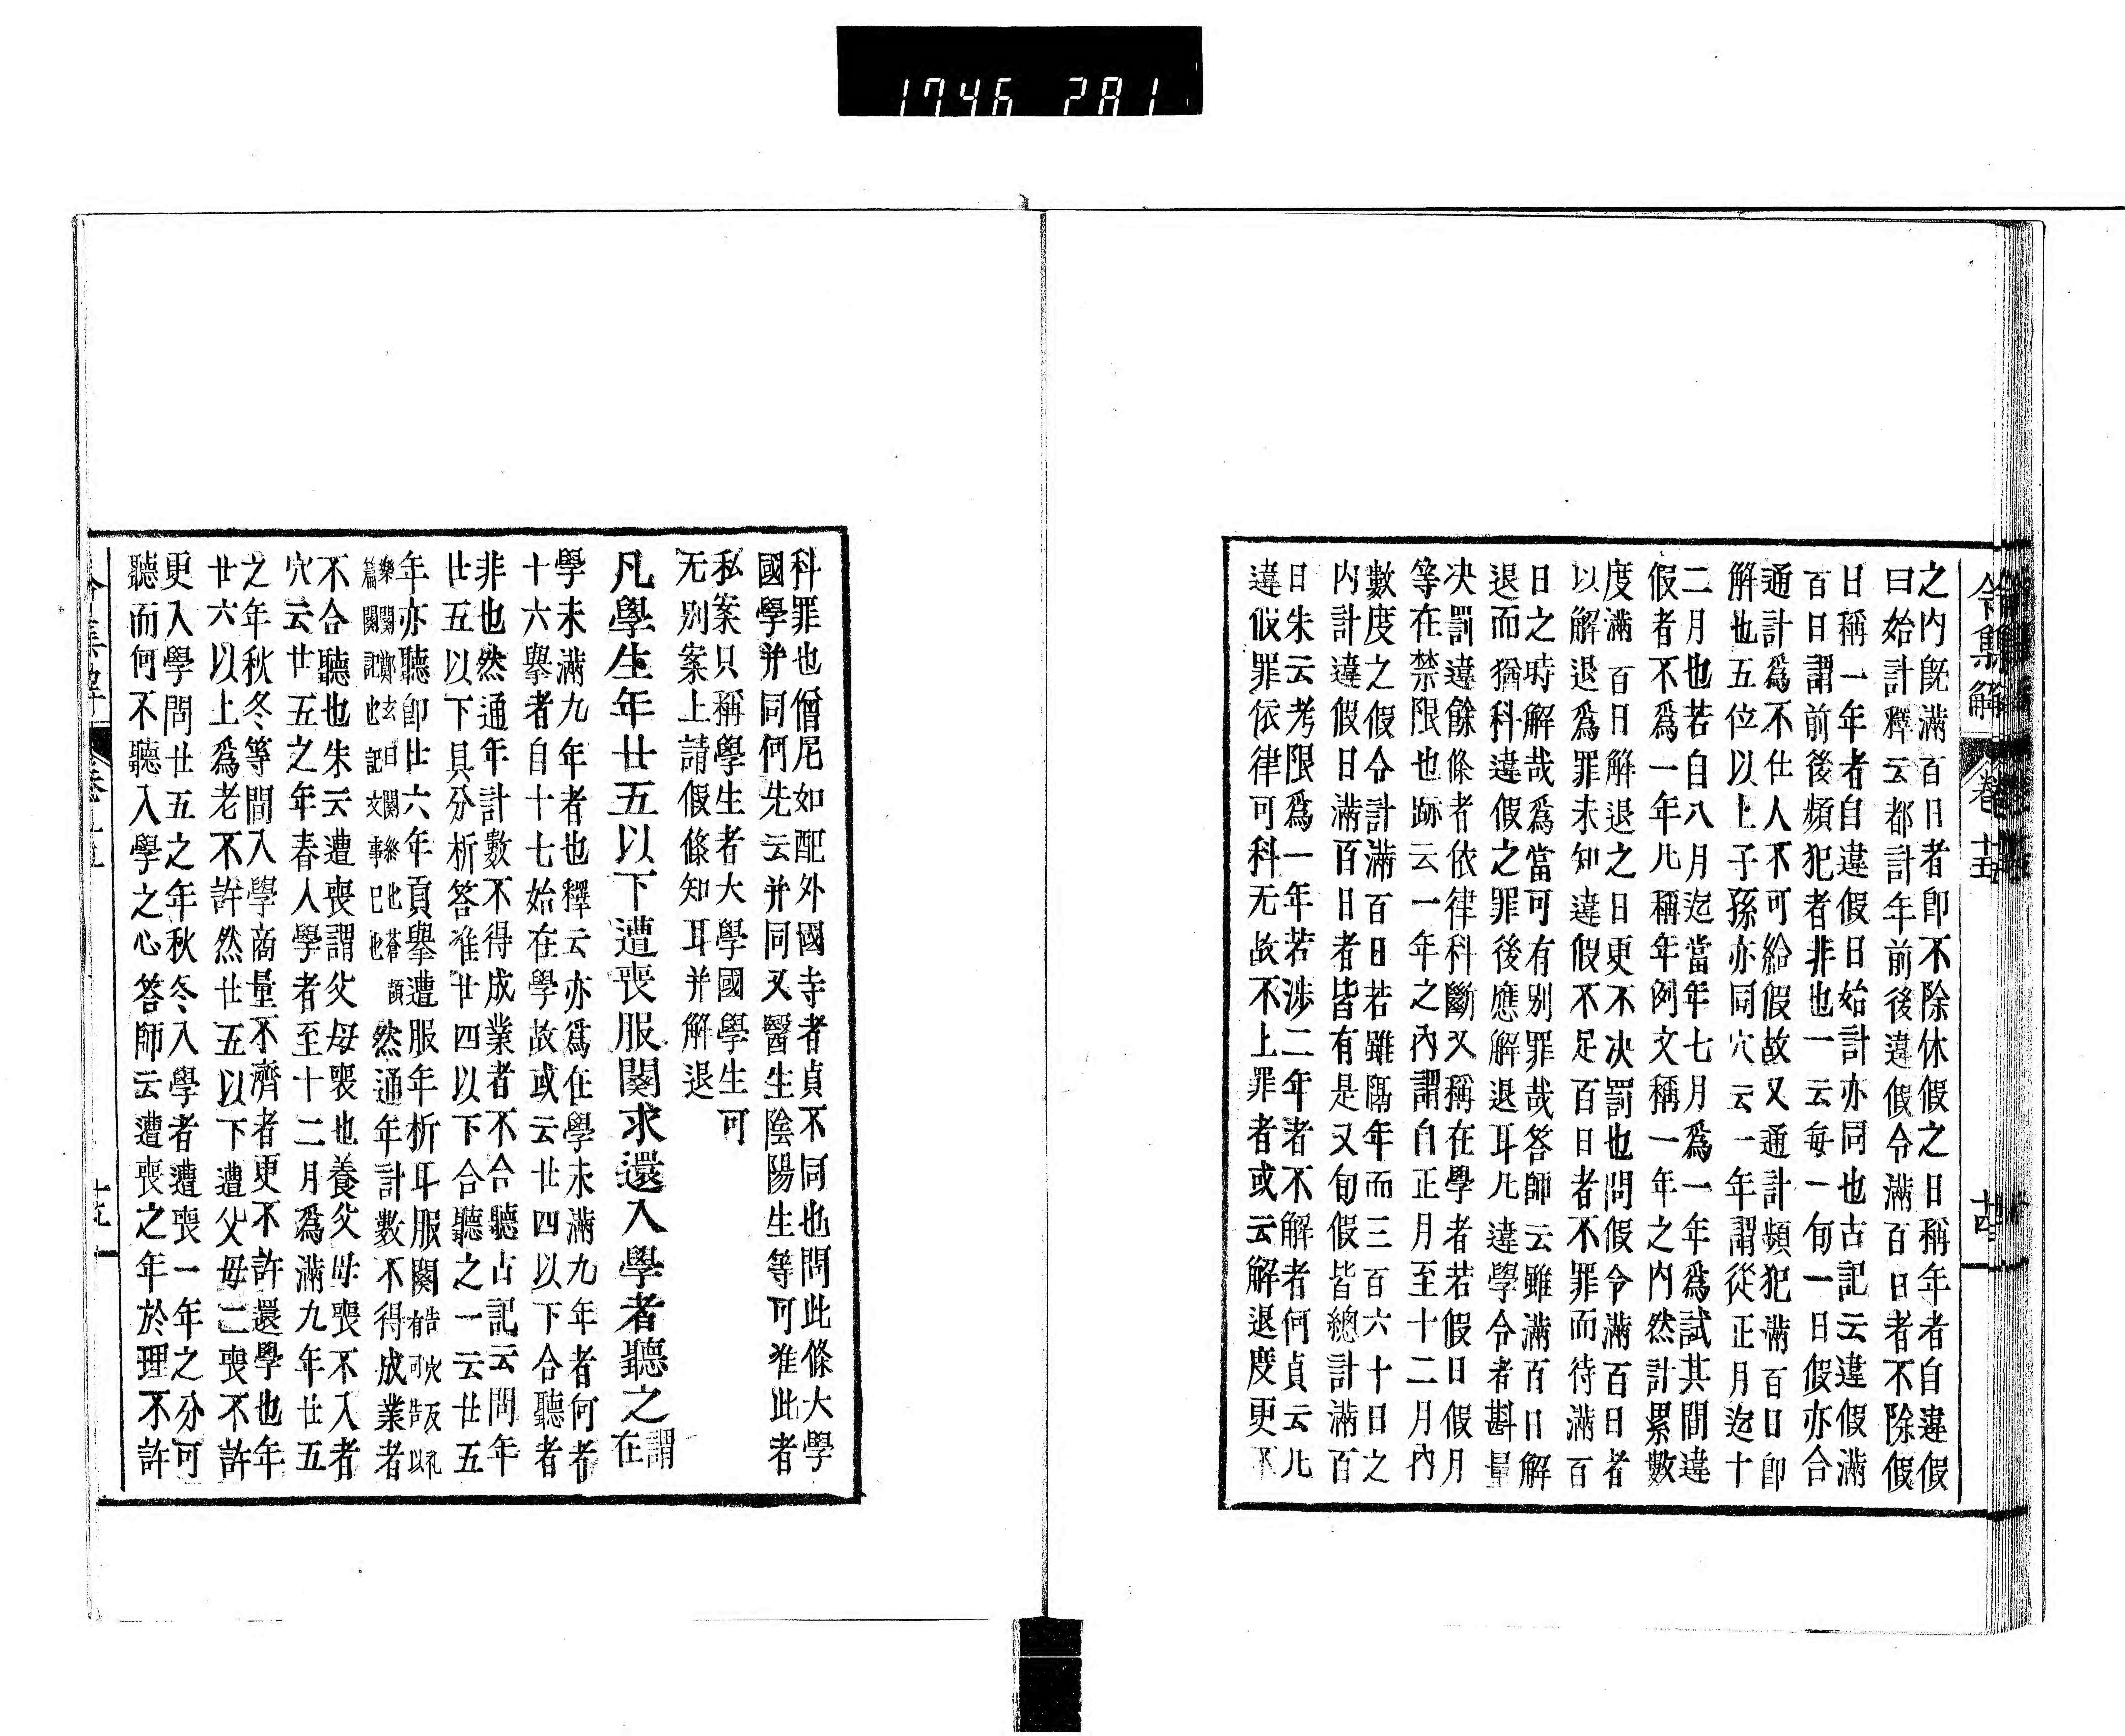 1746 281
令集解 卷十五 十四
之内既滿百日者即不除休假之日稱年者自違假
曰始計釋云都計年前後違假令滿百日者不除假
日稱一年者自違假日始計亦同也古記云違假滿
百日謂前後頻犯者非也一云每一旬一日假亦合
通計爲不仕人不可給假故又通計頻犯滿百日即
解也五位以上子孫亦同穴云一年謂從正月迄十
二月也若自八月迄當年七月爲一年爲試其間違
假者不爲一年凡稱年年例文稱一年之内然計累數
度滿百日解退之日更不决罰也問假令滿百日者
以解退爲罪未知違假不足百日者不罪而待滿百
日之時解哉爲當可有別罪哉答師云雖滿百日解
退而猶科違假之罪後應解退耳凡違學令者斟量
决罰違餘條者依律科斷又稱在學者若假日假月
等在禁限也跡云一年之内謂自正月至十二月內
數度之假令計滿百日若雖隔年而三百六十日之
内計違假日滿百日者皆有是又旬假皆總計滿百
日朱云考限爲一年若渉二年者不解者何貞云凡
違假罪依律可科无故不上罪者或云解退度更不
科罪也僧尼如配外國寺者貞不同也問此條大學
國學并同何先云并同又醫生陰陽生等可准此者
私案只稱學生者大學國學生可
无別案上請假條知耳并解退
凡學生年廿五以下遭喪服闋求還入學者聽之謂
在
學未滿九年者也釋云亦爲在學未滿九年者何者
十六擧者自十七始在學故或云廿四以下合聽者
非也然通年計數不得成業者不合聽古記云問年
廿五以下具分析答准廿四以下合聽之一云廿五
年亦聽即廿六年貢擧遭服年析耳服闋音火反礼
有可告以
樂闋鄭玄曰闋終也蒼頡
篇闋訖也記文事已也
然通年計數不得成業者
不合聽也朱云遭喪謂父母喪也養父母喪不入者
穴云廿五之年春入學者至十二月爲滿九年廿五
之年秋冬等間入學商量不濟者更不許還學也年
廿六以上爲老不許然廿五以下遭父母二喪不許
更入學問廿五之年秋冬入學者遭喪一年之分可
聽而何不聽入學之心答師云遭喪之年於理不許